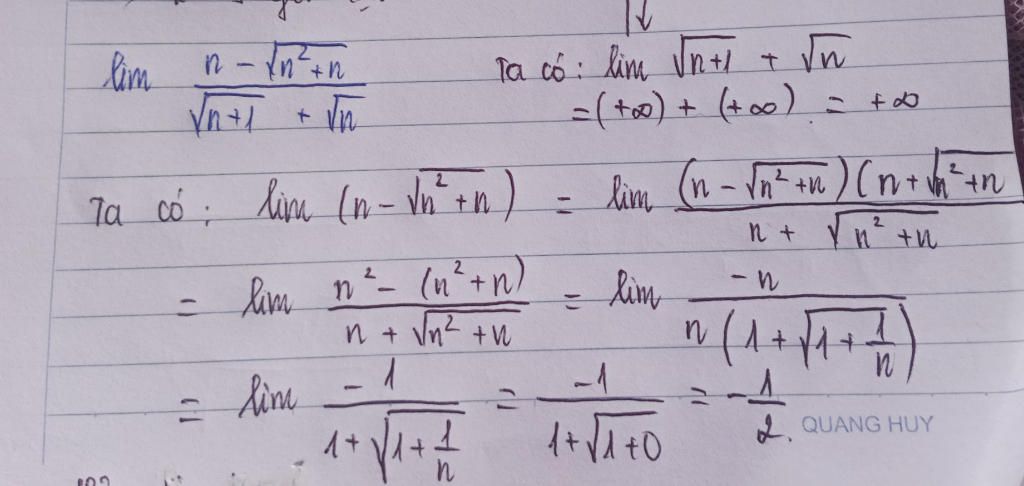 lim (n - √(n² + n)) / (√(n+1) + √n)
Ta có: lim √(n+1) + √n
= (+∞) + (+∞) = +∞
Ta có: lim (n - √(n² + n)) = lim ((n - √(n² + n))(n + √(n² + n)) / (n + √(n² + n))
= lim (n² - (n² + n)) / (n + √(n² + n)) = lim (-n) / (n(1 + √(1 + 1/n)))
= lim (-1) / (1 + √(1 + 1/n)) = (-1) / (1 + √(1+0)) = -1/2.
QUANG HUY